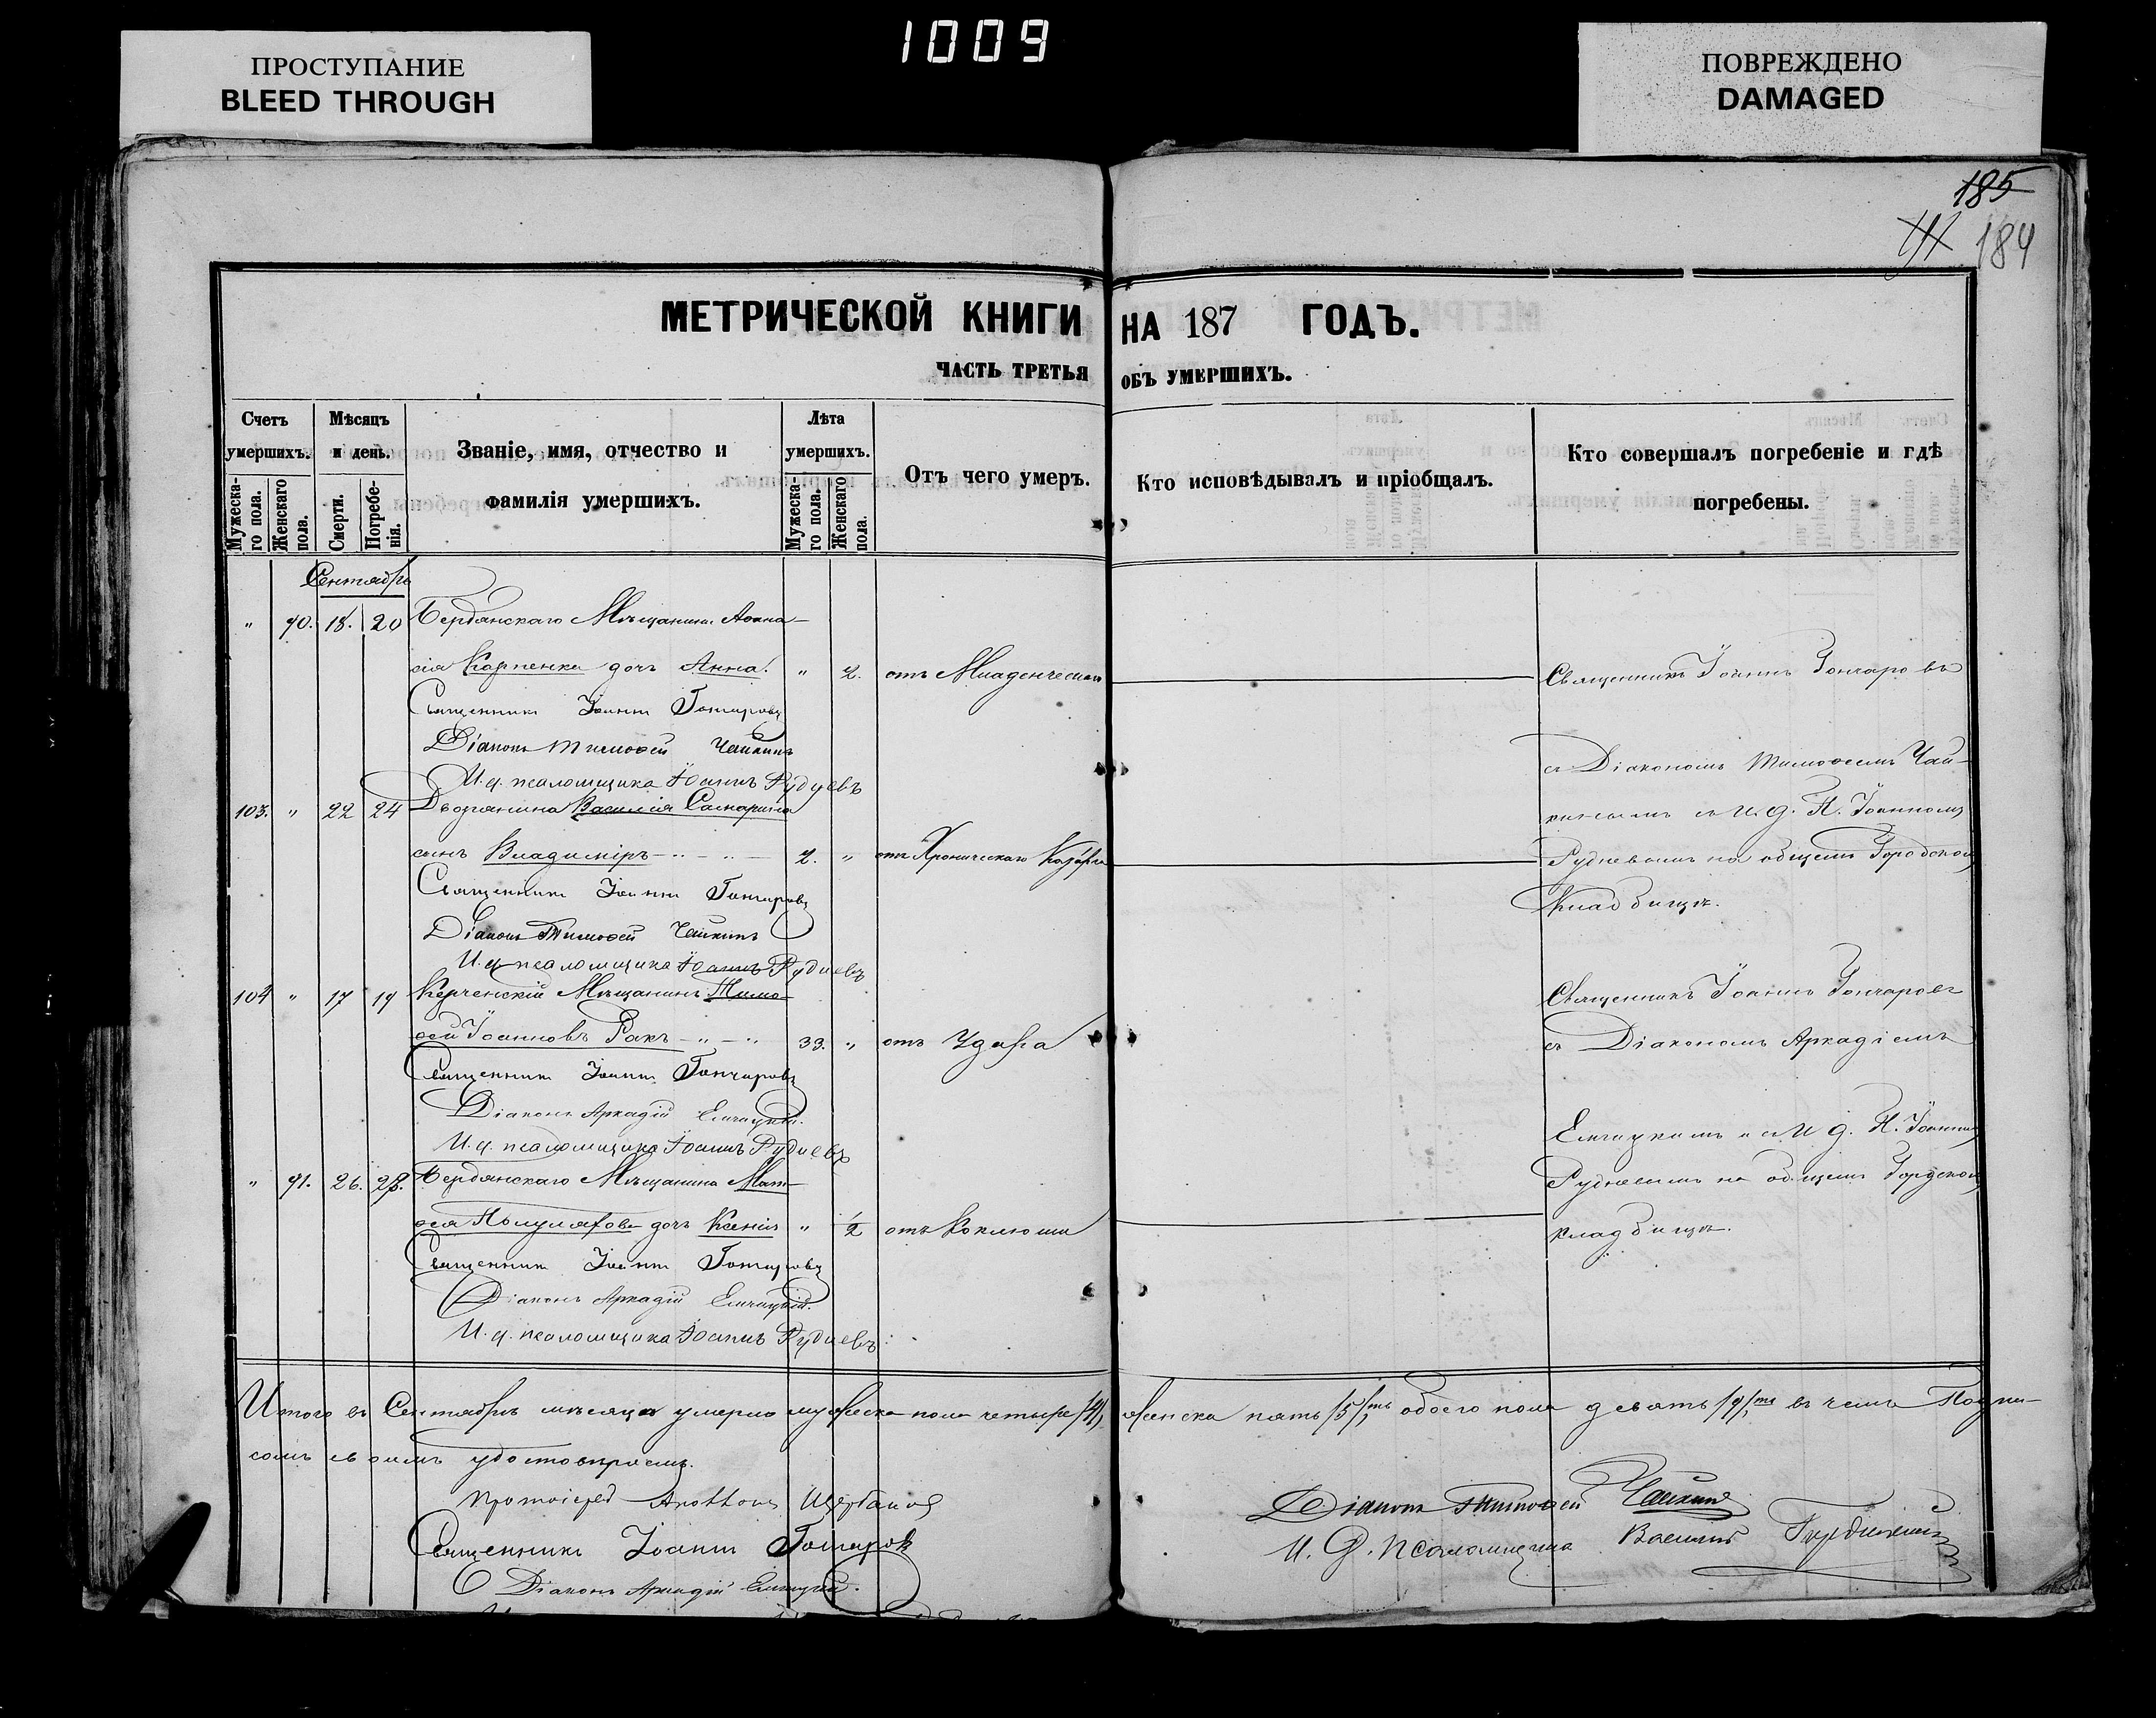 1009
ПРОСТУПАНИЕ
BLEED THROUGH
ПОВРЕЖДЕНО
DAMAGED
185
184
МЕТРИЧЕСКОЙ КНИГИ НА 187 ГОДЪ.
ЧАСТЬ ТРЕТЬЯ ОБЪ УМЕРШИХЪ.
Счетъ умершихъ.
Мужеска-го пола.
Женскаго пола.
Мѣсяцъ и день.
Смерти.
Погребе-нія.
Званіе, имя, отчество и
фамилія умершихъ.
Лѣта умершихъ.
Мужеска-го пола.
Женскаго пола.
Отъ чего умеръ.
Кто исповѣдывалъ и пріобщалъ.
Кто совершалъ погребеніе и гдѣ
погребены.
Сентябрь
" 90. 18. 20 Бердянскаго Мѣщанина Аѳана-
сія Карпенка дочь Анна. " 2. отъ Младенческаго
Священникъ Іоаннъ Гончаровъ
Діаконъ Тимоѳей Чайкинъ
И. д. псаломщика Іоаннъ Рудневъ
Священникъ Іоаннъ Гончаровъ
съ Діакономъ Тимоѳеемъ Чай-
кинымъ и И. д. П. Іоанномъ
Рудневымъ на общемъ Городскомъ
Кладбищѣ.
103. " 22 24 Дворянина Василія
сынъ Владиміръ 2. " отъ Хроническаго
Священникъ Іоаннъ Гончаровъ
Діаконъ Тимоѳей Чайкинъ
И. д. псаломщика Іоаннъ Рудневъ
104 " 17 19 Керченскій Мѣщанинъ Тимо-
ѳей Іоанновъ Ракъ 33. " отъ Удара
Священникъ Іоаннъ Гончаровъ
Діаконъ Аркадій
И. д. псаломщика Іоаннъ Рудневъ
Священникъ Іоаннъ Гончаровъ
съ Діакономъ Аркадіемъ
и И. д. П. Іоанномъ
Рудневымъ на общемъ Городскомъ
кладбищѣ.
" 91. 26. 28. Бердянскаго Мѣщанина Мат-
ѳея дочь Ксенія " 1/2 отъ Коклюша
Священникъ Іоаннъ Гончаровъ
Діаконъ Аркадій
И. д. псаломщика Іоаннъ Рудневъ
Итого въ Сентябрѣ мѣсяцѣ умерло мужеска пола четыре /4/, женска пять /5/ть обоего пола девять /9/ть въ чемъ Подпи-
сомъ своимъ удостовѣряемъ.
Протоіерей Щербаковъ
Священникъ Іоаннъ Гончаровъ
Діаконъ Аркадій
Діаконъ Тимоѳей Чайкинъ
И. д. псаломщика Василій